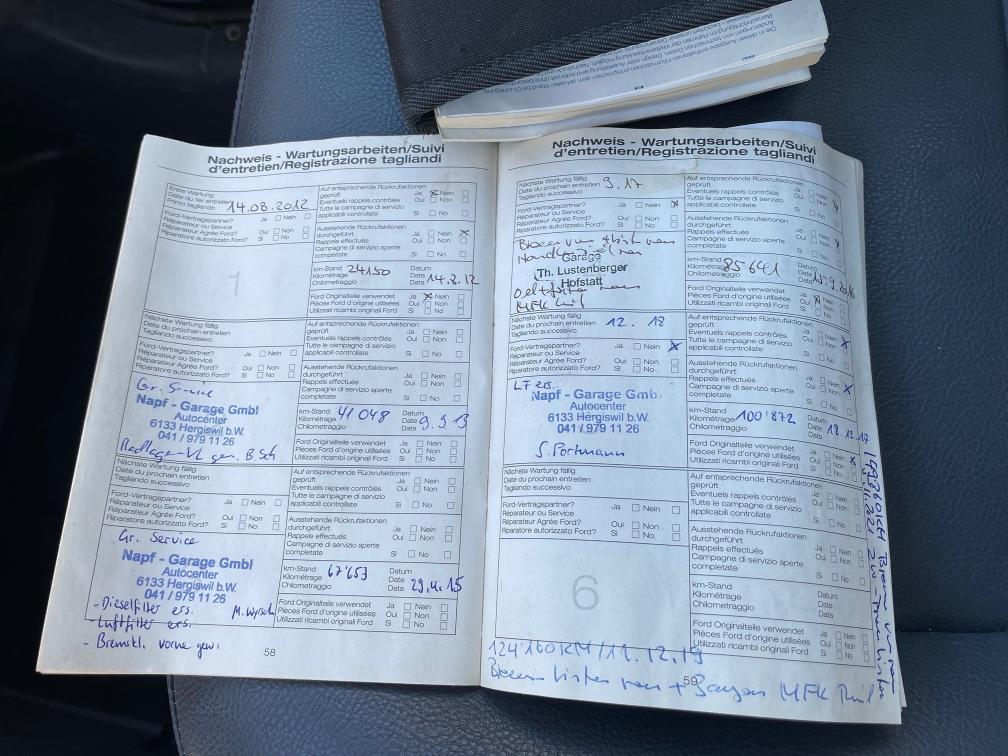 Nachweis - Wartungsarbeiten/Suivi
d'entretien/Registrazione tagliandi
Erste Wartung
Date du 1er entretien
Primo tagliando
14.08.2012
Ford-Vertragspartner?
Réparateur ou Service
Réparateur Agrée Ford?
Riparatore autorizzato Ford?
Ja Nein
Oui Non
Si No
1
Auf entsprechende Rückrufaktionen
geprüft
Eventuels rappels contrôlés
Tutte le campagne di servizio
applicabili controllate
Ja Nein
Oui Non
Si No
Ausstehende Rückrufaktionen
durchgeführt
Rappels effectués
Campagne di servizio aperte
completate
Ja Nein
Oui Non
Si No
km-Stand
Kilométrage
Chilometraggio
24150
Datum
Date
Data
14.8.12
Ford Originalteile verwendet
Pièces Ford d'origine utilisées
Utilizzati ricambi originali Ford
Ja Nein
Oui Non
Si No
Nächste Wartung fällig
Date du prochain entretien
Tagliando successivo
Ford-Vertragspartner?
Réparateur ou Service
Réparateur Agrée Ford?
Riparatore autorizzato Ford?
Ja Nein
Oui Non
Si No
Gr. Service
Napf - Garage Gmbl
Autocenter
6133 Hergiswil b.W.
041 / 979 11 26
Radlager VL gew. B Sch
Auf entsprechende Rückrufaktionen
geprüft
Eventuels rappels contrôlés
Tutte le campagne di servizio
applicabili controllate
Ja Nein
Oui Non
Si No
Ausstehende Rückrufaktionen
durchgeführt
Rappels effectués
Campagne di servizio aperte
completate
Ja Nein
Oui Non
Si No
km-Stand
Kilométrage
Chilometraggio
41048
Datum
Date
Data
9.9.13
Ford Originalteile verwendet
Pièces Ford d'origine utilisées
Utilizzati ricambi originali Ford
Ja Nein
Oui Non
Si No
Nächste Wartung fällig
Date du prochain entretien
Tagliando successivo
Ford-Vertragspartner?
Réparateur ou Service
Réparateur Agrée Ford?
Riparatore autorizzato Ford?
Ja Nein
Oui Non
Si No
Gr. Service
Napf - Garage Gmbl
Autocenter
6133 Hergiswil b.W.
041 / 979 11 26
- Dieselfilter ers.
- Luftfilter ers.
- Bremskl. vorne gew.
Auf entsprechende Rückrufaktionen
geprüft
Eventuels rappels contrôlés
Tutte le campagne di servizio
applicabili controllate
Ja Nein
Oui Non
Si No
Ausstehende Rückrufaktionen
durchgeführt
Rappels effectués
Campagne di servizio aperte
completate
Ja Nein
Oui Non
Si No
km-Stand
Kilométrage
Chilometraggio
67'653
Datum
Date
Data
29.4.15
Ford Originalteile verwendet
Pièces Ford d'origine utilisées
Utilizzati ricambi originali Ford
Ja Nein
Oui Non
Si No
58
Nachweis - Wartungsarbeiten/Suivi
d'entretien/Registrazione tagliandi
Nächste Wartung fällig
Date du prochain entretien
Tagliando successivo
9.17
Ford-Vertragspartner?
Réparateur ou Service
Réparateur Agrée Ford?
Riparatore autorizzato Ford?
Ja Nein
Oui Non
Si No
Garage
Th. Lustenberger
Hofstatt
Auf entsprechende Rückrufaktionen
geprüft
Eventuels rappels contrôlés
Tutte le campagne di servizio
applicabili controllate
Ja Nein
Oui Non
Si No
Ausstehende Rückrufaktionen
durchgeführt
Rappels effectués
Campagne di servizio aperte
completate
Ja Nein
Oui Non
Si No
km-Stand
Kilométrage
Chilometraggio
85641
Datum
Date
Data
15.9.2016
Ford Originalteile verwendet
Pièces Ford d'origine utilisées
Utilizzati ricambi originali Ford
Ja Nein
Oui Non
Si No
Nächste Wartung fällig
Date du prochain entretien
Tagliando successivo
12. 18
Ford-Vertragspartner?
Réparateur ou Service
Réparateur Agrée Ford?
Riparatore autorizzato Ford?
Ja Nein
Oui Non
Si No
LF ers.
Napf - Garage Gmb
Autocenter
6133 Hergiswil b.W.
041 / 979 11 26
S. Portmann
Auf entsprechende Rückrufaktionen
geprüft
Eventuels rappels contrôlés
Tutte le campagne di servizio
applicabili controllate
Ja Nein
Oui Non
Si No
Ausstehende Rückrufaktionen
durchgeführt
Rappels effectués
Campagne di servizio aperte
completate
Ja Nein
Oui Non
Si No
km-Stand
Kilométrage
Chilometraggio
100'872
Datum
Date
Data
18.12.17
Ford Originalteile verwendet
Pièces Ford d'origine utilisées
Utilizzati ricambi originali Ford
Ja Nein
Oui Non
Si No
Nächste Wartung fällig
Date du prochain entretien
Tagliando successivo
Ford-Vertragspartner?
Réparateur ou Service
Réparateur Agrée Ford?
Riparatore autorizzato Ford?
Ja Nein
Oui Non
Si No
6
Auf entsprechende Rückrufaktionen
geprüft
Eventuels rappels contrôlés
Tutte le campagne di servizio
applicabili controllate
Ja Nein
Oui Non
Si No
Ausstehende Rückrufaktionen
durchgeführt
Rappels effectués
Campagne di servizio aperte
completate
Ja Nein
Oui Non
Si No
km-Stand
Kilométrage
Chilometraggio
Datum
Date
Data
Ford Originalteile verwendet
Pièces Ford d'origine utilisées
Utilizzati ricambi originali Ford
Ja Nein
Oui Non
Si No
124'160 KM / 11.12.19
59
MFK